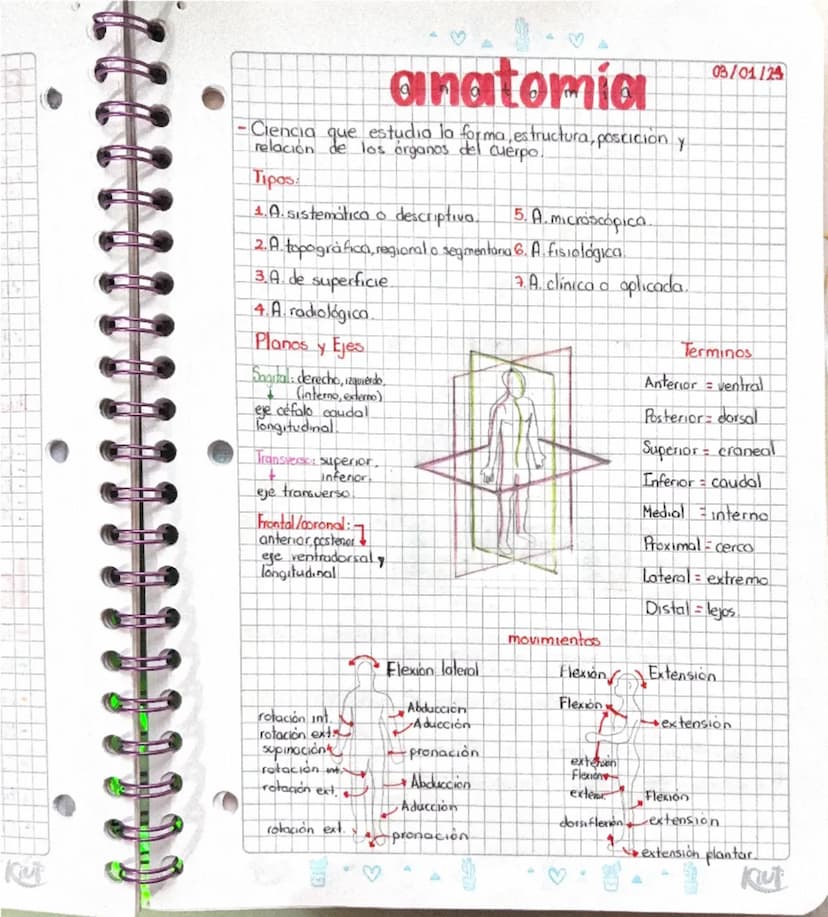 anatomía
03/01/24
- Ciencia que estudia la forma, estructura, poscición y
relación de los órganos del cuerpo.
Tipos:
1. A. sistemática o descriptiva.
2. A. topográfica, regional o segmentaria
3. A. de superficie
4. A. radiológica.
5. A. microscópica.
6. A. fisiológica.
7. A. clínica o aplicada.
Planos y Ejes
Sagital: derecho, izquierdo,
(interno, externo)
eje céfalo caudal
longitudinal.
Transverso: superior,
inferior.
eje transverso.
Frontal/coronal:
anterior, posterior
eje ventrodorsal y
longitudinal
Terminos
Anterior = ventral
Posterior = dorsal
Superior = craneal
Inferior = caudal
Medial = interno
Proximal = cerca
Lateral = extremo
Distal = lejos.
movimientos
Flexión lateral
Abducción
Aducción
rotación int.
rotación ext.
supinación
pronación
rotación int.
rotación ext.
Abducción
Aducción
rotación ext.
pronación
Flexión
Extensión
Flexión
extensión
extensión
Flexión
exten.
Flexión
dorsiflexión
extensión
extensión plantar.
Kiut
Kiut